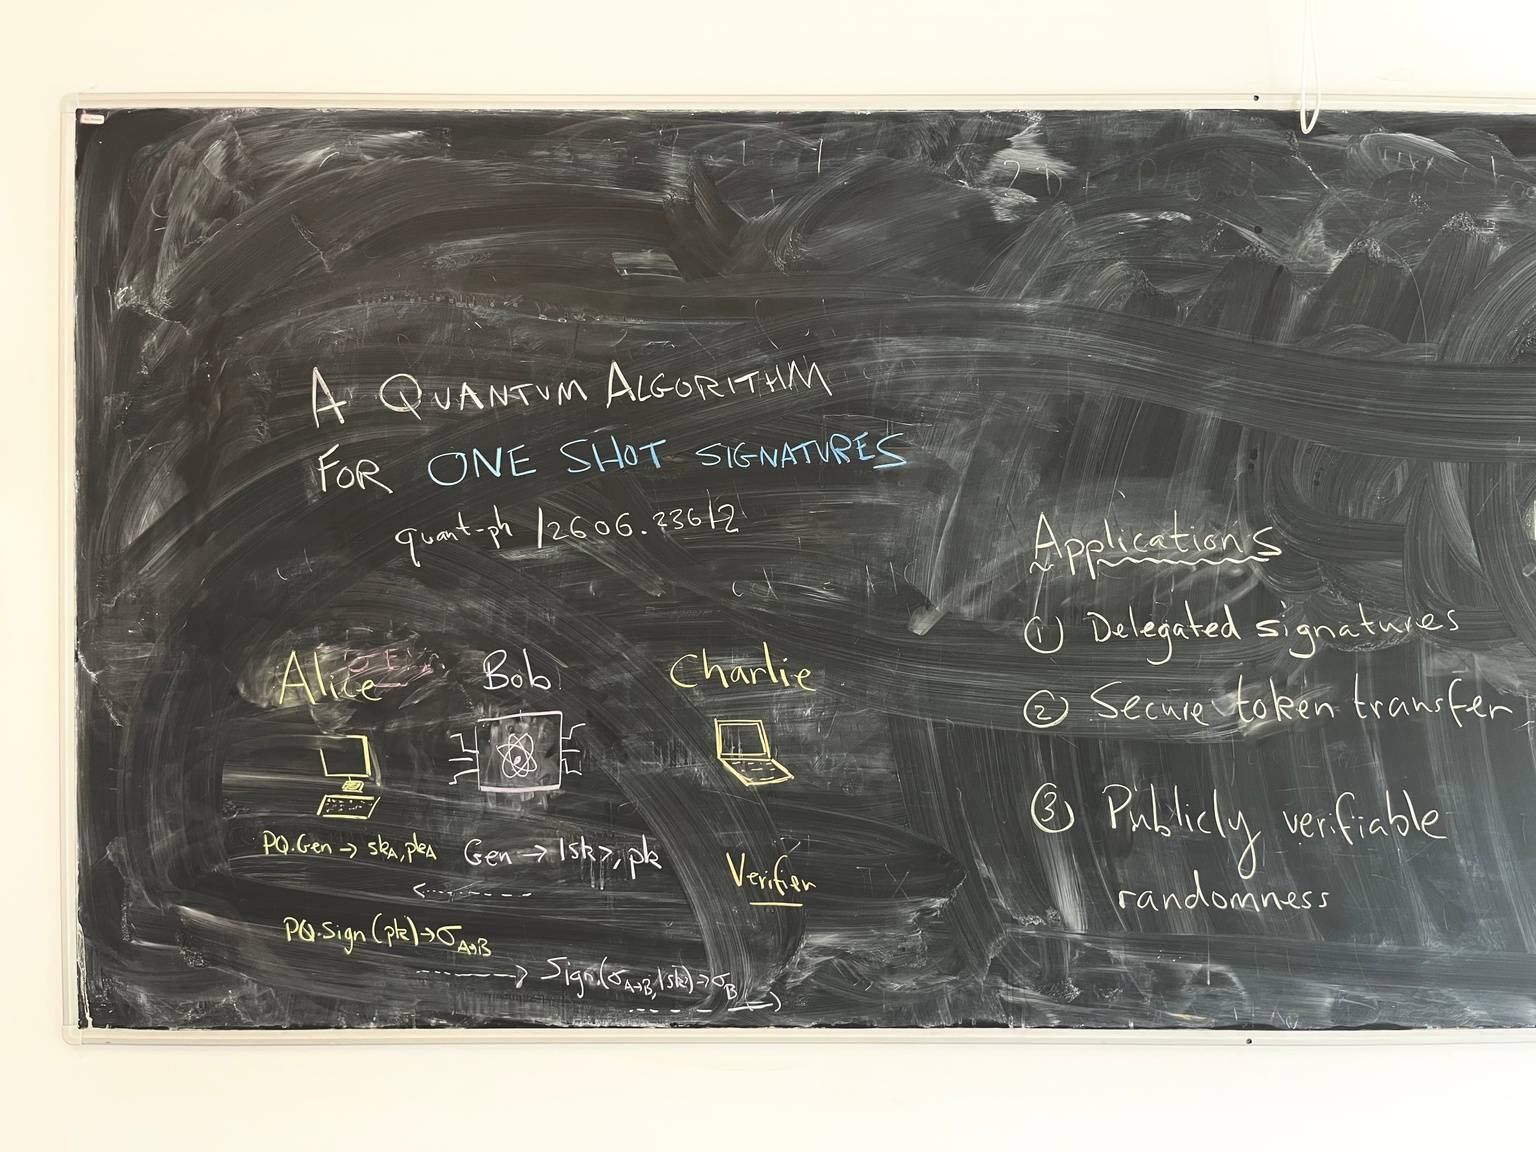 A QUANTUM ALGORITHM
FOR ONE SHOT SIGNATURES
quant-ph /2606.23612
Alice
Bob
Charlie
PQ.Gen → skA, pkA
Gen → |sk>, pk
Verifier
PQ.Sign(pk) → σA→B
Sign(σA→B, |sk>) → σB
Applications
① Delegated signatures
② Secure token transfer
③ Publicly verifiable
randomness